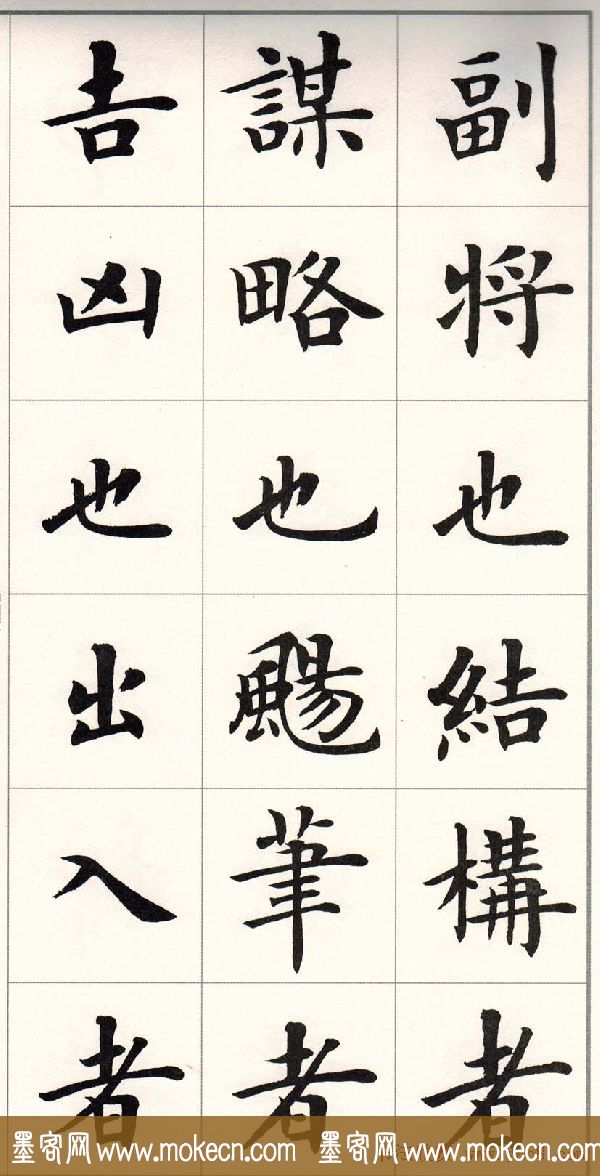 副将也結構者
謀略也颺筆者
吉凶也出入者
墨客网 www.mokecn.com 墨客网 www.mokecn.com